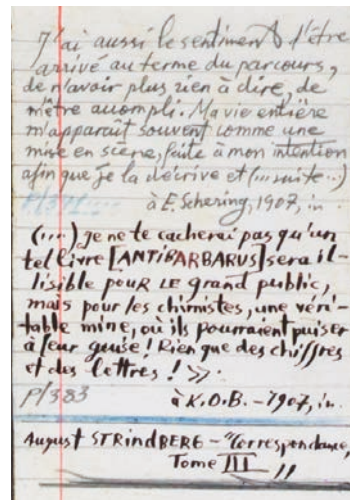 J'ai aussi le sentiment d'être
arrivé au terme du parcours,
de n'avoir plus rien à dire, de
m'être accompli. Ma vie entière
m'apparaît souvent comme une
mise en scène, faite à mon intention
afin que je la décrive et (...suite...)
P/371
à E. Schering, 1907, in
(...) Je ne te cacherai pas qu'un
tel livre [ANTIBARBARUS] sera il-
lisible pouR LE grand public,
mais pour les chimistes, une véri-
table mine, où ils pourraient puiser
à leur guise! Rien que des chiffres
et des lettres! >>.
P/383 à K.O.B. - 1907, in.
August STRindBERG - "Correspondance,
Tome III ,,